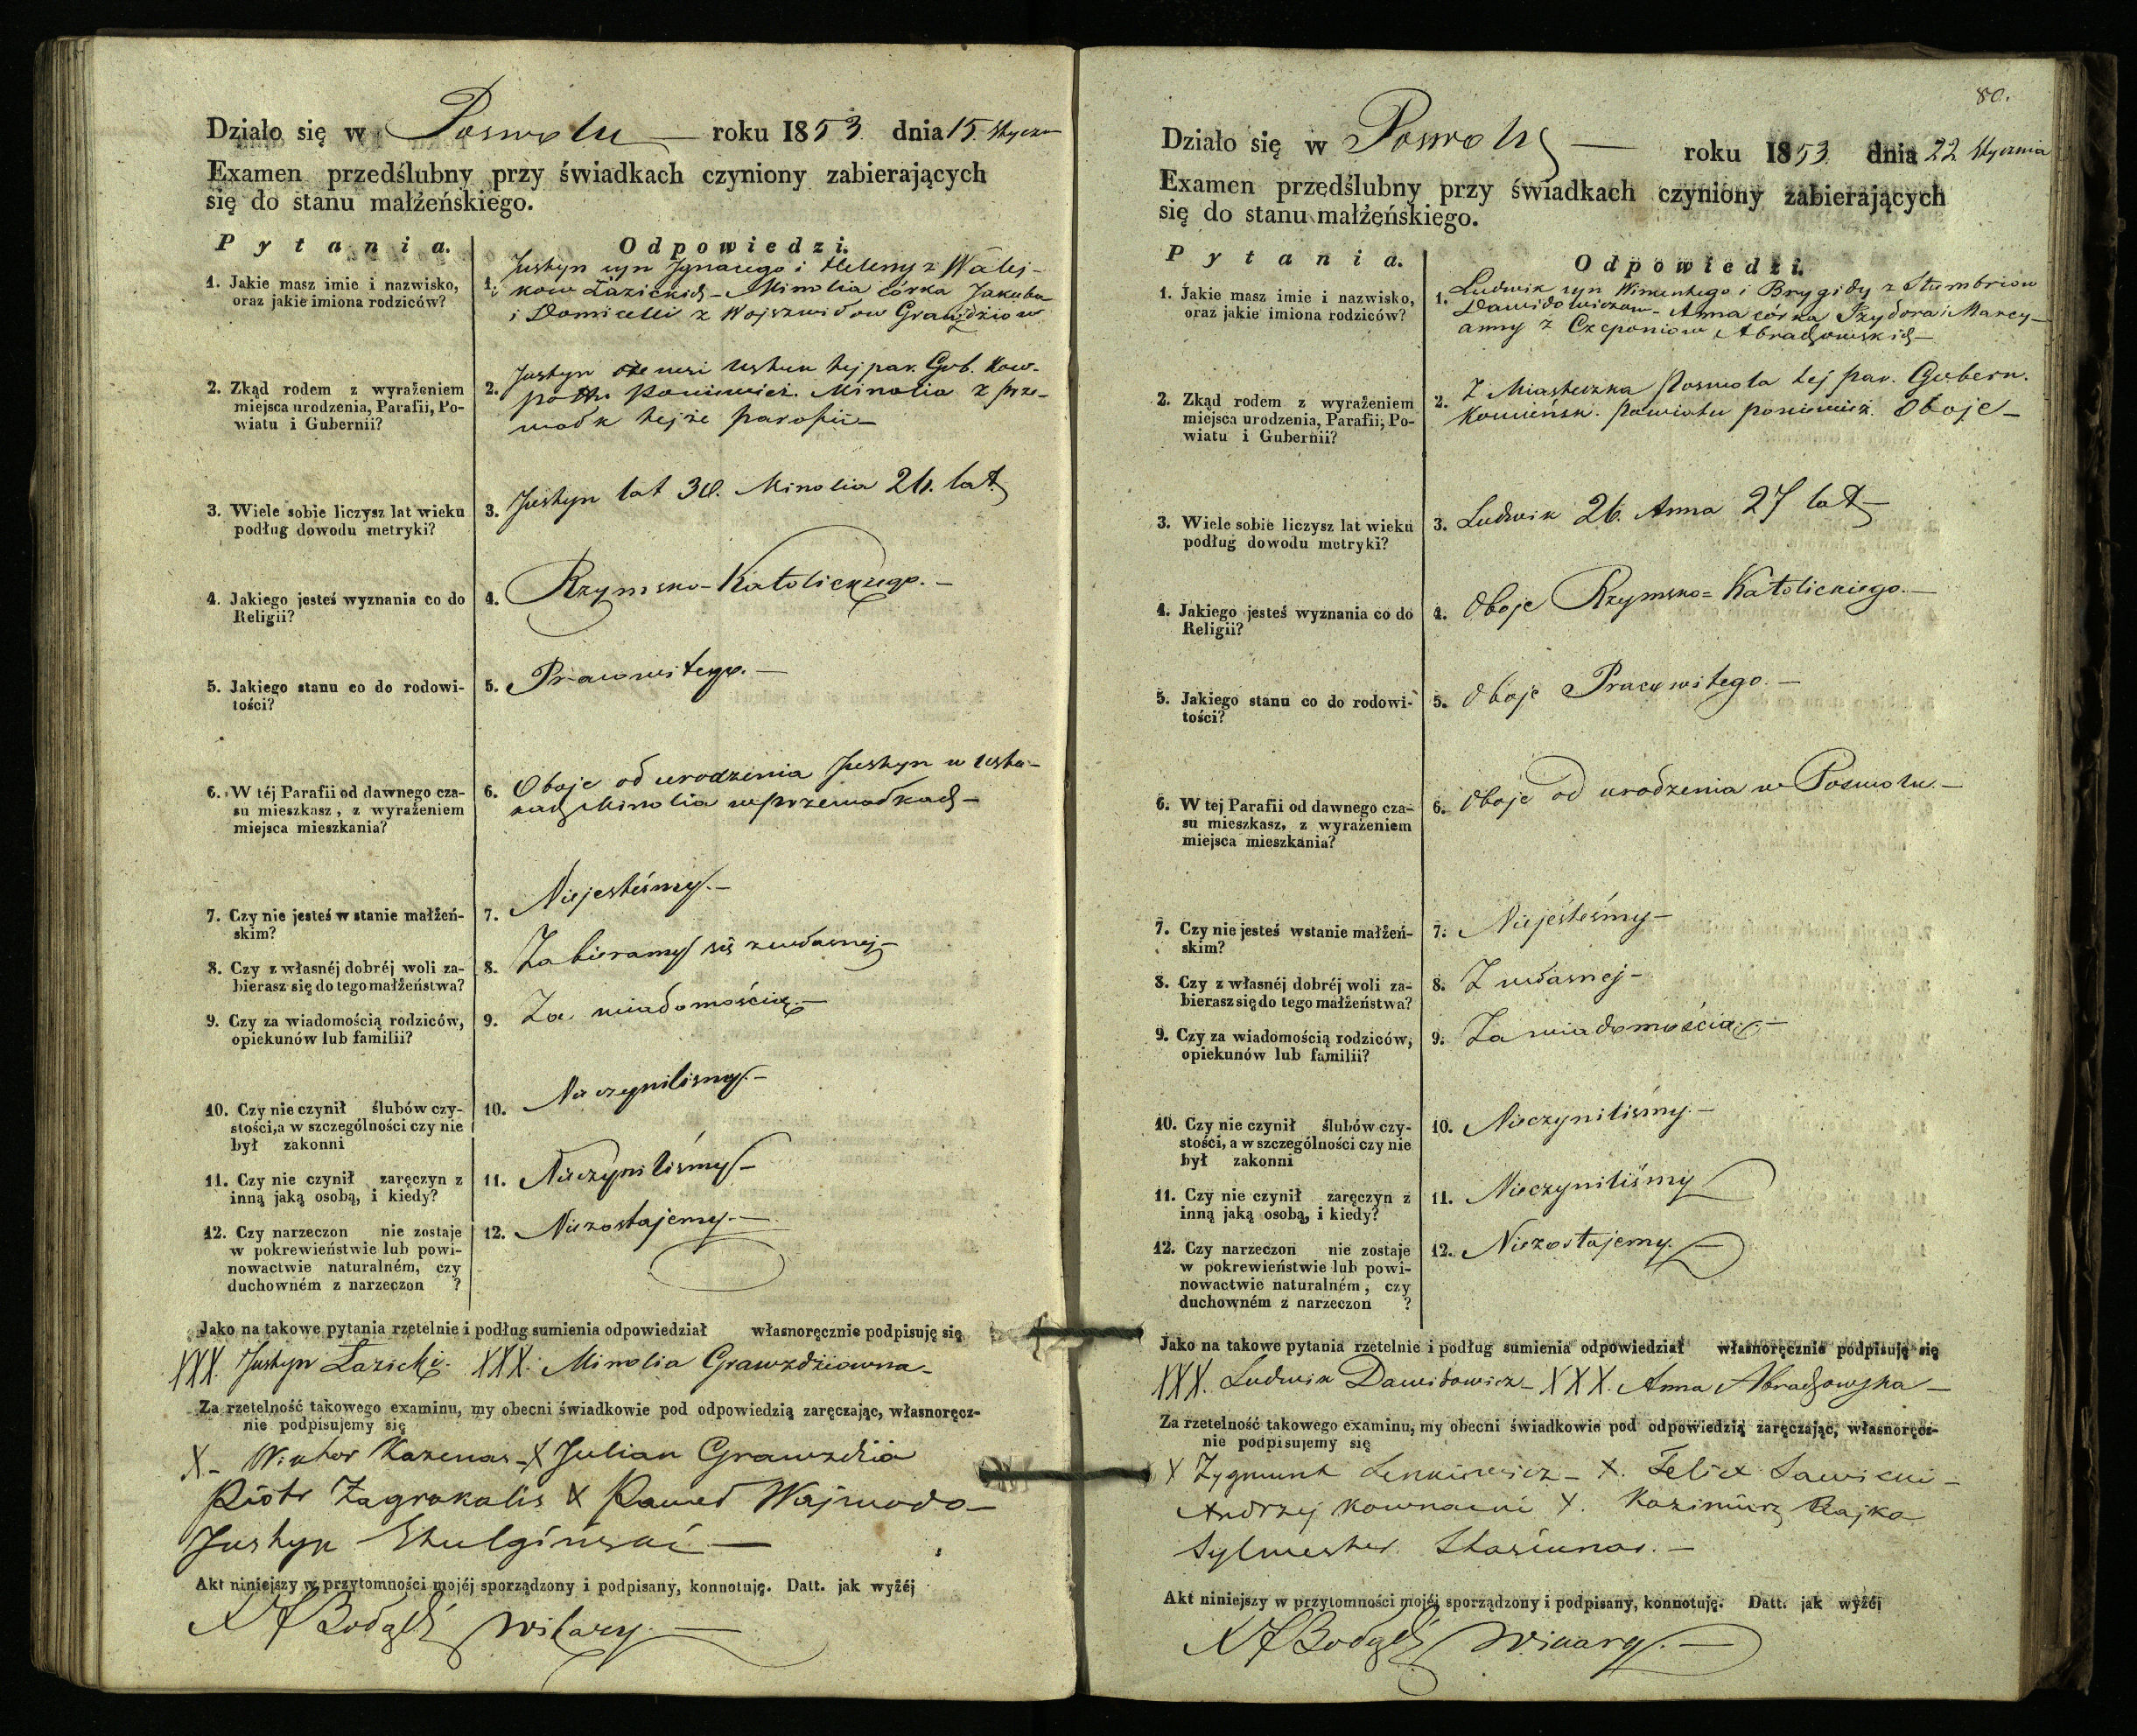 Działo się w Poswolu — roku 1853 dnia 15. Styczn
Examen przedślubny przy świadkach czyniony zabierających
się do stanu małżeńskiego.
Pytania.
Odpowiedzi.
1. Jakie masz imie i nazwisko,
oraz jakie imiona rodziców?
1. Justyn syn Ignacego i Heleny z Walej-
kow Łazickich – Minolia córka Jakuba
i Domicelli z Wojszwidow Grawzdziow
2. Zkąd rodem z wyrażeniem
miejsca urodzenia, Parafii, Po-
wiatu i Gubernii?
2. Justyn ze wsi tej par. Gub. Kow.
Poniewież. Minolia z Prze-
wodk tejże parafii –
3. Wiele sobie liczysz lat wieku
podług dowodu metryki?
3. Justyn lat 30. Minolia 26. lat
4. Jakiego jesteś wyznania co do
Religii?
4. Rzymsko-Katolickiego. –
5. Jakiego stanu co do rodowi-
tości?
5. Pracowitego. –
6. W téj Parafii od dawnego cza-
su mieszkasz, z wyrażeniem
miejsca mieszkania?
6. Oboje od urodzenia Justyn w
Minolia w Przewodkach –
7. Czy nie jesteś w stanie małżeń-
skim?
7. Niejesteśmy. –
8. Czy z własnéj dobréj woli za-
bierasz się do tego małżeństwa?
8. Zabieramy się z własnej –
9. Czy za wiadomością rodziców,
opiekunów lub familii?
9. Za wiadomością. –
10. Czy nie czynił ślubów czy-
stości, a w szczególności czy nie
był zakonni
10. Nieczyniliśmy. –
11. Czy nie czynił zaręczyn z
inną jaką osobą, i kiedy?
11. Nieczyniliśmy –
12. Czy narzeczon nie zostaje
w pokrewieństwie lub powi-
nowactwie naturalném, czy
duchowném z narzeczon ?
12. Niezostajemy. –
Jako na takowe pytania rzetelnie i podług sumienia odpowiedział własnoręcznie podpisuję się
XXX. Justyn Łazicki. XXX. Minolia Grawzdziowna –
Za rzetelność takowego examinu, my obecni świadkowie pod odpowiedzią zaręczając, własnoręcz-
nie podpisujemy się
X – Wiktor Kazenas – X Julian Grawzdzia
Piotr Zagrakalis X Paweł Wajwoda –
Justyn Szulgiński —
Akt niniejszy w przytomności mojéj sporządzony i podpisany, konnotuję. Datt. jak wyżéj
Wikary. —
80.
Działo się w Poswolu — roku 1853. dnia 22 Stycznia
Examen przedślubny przy świadkach czyniony zabierających
się do stanu małżeńskiego.
Pytania.
Odpowiedzi.
1. Jakie masz imie i nazwisko,
oraz jakie imiona rodziców?
1. Ludwik syn Wincentego i Brygidy z Stumbriow
Dawidowiczow – Anna córka Izydora i Marcy-
anny z Czeponiow Abrachowskich –
2. Zkąd rodem z wyrażeniem
miejsca urodzenia, Parafii, Po-
wiatu i Gubernii?
2. Z Miasteczka Poswola tej par. Gubern.
Kowieńsk. Powiatu Poniewież. Oboje –
3. Wiele sobie liczysz lat wieku
podług dowodu metryki?
3. Ludwik 26. Anna 27 lat –
4. Jakiego jesteś wyznania co do
Religii?
4. Oboje Rzymsko=Katolickiego. –
5. Jakiego stanu co do rodowi-
tości?
5. Oboje Pracowitego. –
6. W tej Parafii od dawnego cza-
su mieszkasz, z wyrażeniem
miejsca mieszkania?
6. Oboje od urodzenia w Poswolu. –
7. Czy nie jesteś wstanie małżeń-
skim?
7. Niejesteśmy –
8. Czy z własnéj dobréj woli za-
bierasz się do tego małżeństwa?
8. Z własnej –
9. Czy za wiadomością rodziców,
opiekunów lub familii?
9. Za wiadomością. –
10. Czy nie czynił ślubów czy-
stości, a w szczególności czy nie
był zakonni
10. Nieczyniliśmy. –
11. Czy nie czynił zaręczyn z
inną jaką osobą, i kiedy?
11. Nieczyniliśmy
12. Czy narzeczon nie zostaje
w pokrewieństwie lub powi-
nowactwie naturalném, czy
duchowném z narzeczon ?
12. Niezostajemy. –
Jako na takowe pytania rzetelnie i podług sumienia odpowiedział własnoręcznie podpisuję się
XXX. Ludwik Dawidowicz – XXX. Anna Abrachowska –
Za rzetelność takowego examinu, my obecni świadkowie pod odpowiedzią zaręczając, własnoręcz-
nie podpisujemy się
X Zygmunt Lenkiewicz – X. Felix Sawicki –
Andrzej Kownacki X. Kazimierz Rajka
Sylwester Stasiunas. –
Akt niniejszy w przytomności mojéj sporządzony i podpisany, konnotuję. Datt. jak wyżéj
Wikary. —